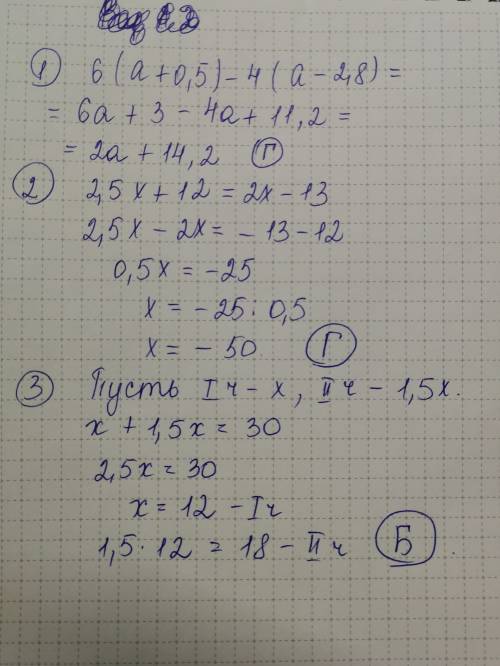 1) 6(a+0,5)-4(a-2,8)=
= 6a+3-4a+11,2=
= 2a+14,2 Г
2) 2,5x+12=2x-13
2,5x-2x=-13-12
0,5x=-25
x=-25:0,5
x=-50 Г
3) Пусть I ч - x, II ч - 1,5x.
x+1,5x=30
2,5x=30
x=12 - I ч
1,5·12=18 - II ч Б.